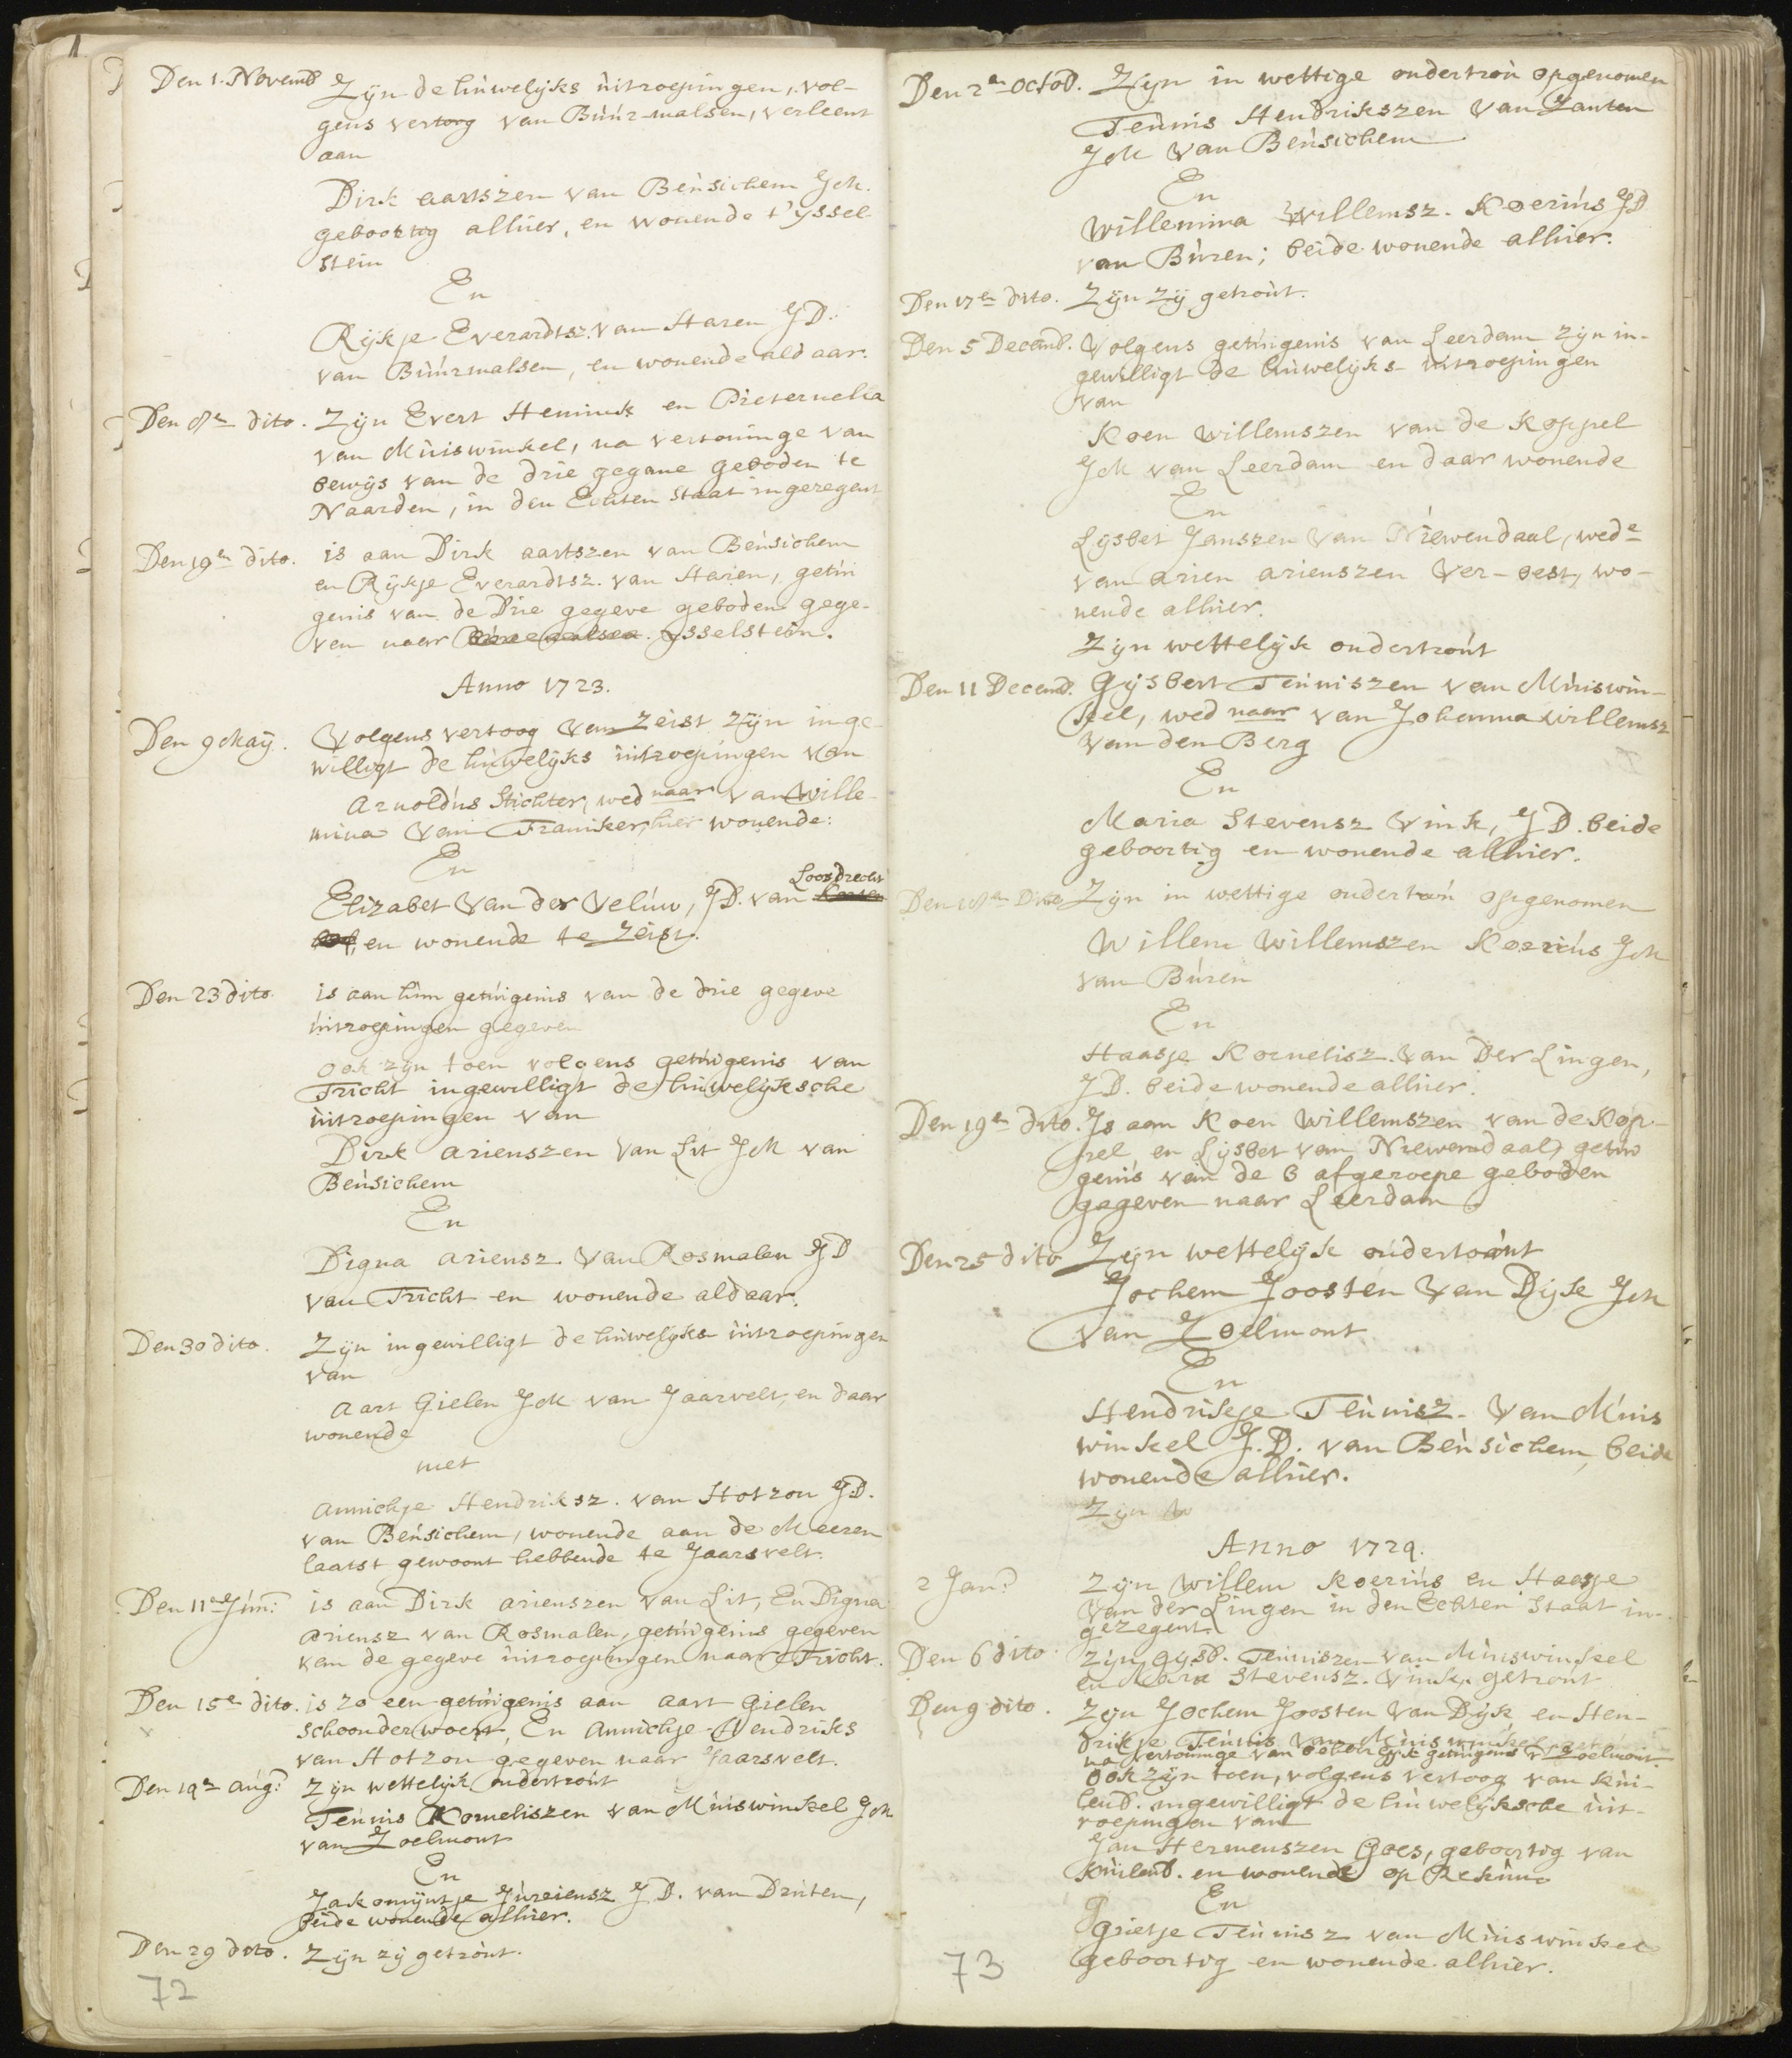 Den 1. Novemb Zijn de huwelijks uitroepingen, vol-
gens vertoog van Buur-malsen, verleent
aan
Dirk aartszen van Beusichem JM.
geboortig alhier, en wonende t'yssel-
stein
En
Rijkje Everardtsz. van Haren JD.
van Buurmalsen, en wonende aldaar.
Den 8en dito. Zijn Evert Hennink en Pieternella
van Muiswinkel, na vertoninge van
bewijs van de drie gegane geboden te
Naarden, in den Echten Staat ingezegent
Den 19en dito. is aan Dirk aartszen van Beusichem
en Rijkje Everardtsz. van Haren, getui
genis van de Drie gegeve geboden gege-
ven naar ysselstein.
Anno 1723.
Den 9 Maij. Volgens vertoog van Zeist zijn inge-
willigt de huwelijks uitroepingen van
Arnoldus Stichter, wed naar van Wille-
mina van Franiker, hier wonende:
En
Loosdrecht
Elizabet van der Veluw, JD. van
en wonende te Zeist.
Den 23 dito. is aan hun getuigenis van de drie gegeve
uitroepingen gegeven
ook zijn toen volgens getuigenis van
Tricht ingewilligt de huwelijksche
uitroepingen van
Dirk arienszen van Lit JM van
Beusichem
En
Digna ariensz van Rosmalen JD
van Tricht en wonende aldaar.
Den 30 dito. Zijn ingewilligt de huwelijks uitroepingen
van
Aart Gielen JM van Jaarvelt, en daar
wonende
met
Annichje Hendriksz. van Hotzon JD.
van Beusichem, wonende aan de Meeren
laatst gewoont hebbende te Jaarsvelt.
Den 11en Jun: is aan Dirk arienszen van Lit, En Digna
ariensz van Rosmalen, getuigenis gegeven
van de gegeve uitroepingen naar Tricht.
Den 15e dito. is zo een getuigenis aan aart Gielen
schoonderwoert, En Annichje Hendriks
van Hotzon gegeven naar Jaarsvelt.
Den 19en Aug: Zijn wettelijk ondertrout
Teunis Korneliszen van Muiswinkel JM
van Zoelmont
En
Jakomijntje Jureiensz JD. van Druten,
beide wonende alhier.
Den 29 dito. Zijn zij getrout.
72
Den 2en Octob. Zijn in wettige ondertrou opgenomen
Teunis Hendrikszen van Zanten
JM van Beusichem
En
Willemina Willemsz. Koerius JD
van Buren; beide wonende alhier.
Den 17en dito. Zijn zij getrout.
Den 5 Decemb. Volgens getuigenis van Leerdam zijn in-
gewilligt de huwelijks uitroepingen
van
Koen Willemszen van de Koppel
JM van Leerdam en daar wonende
En
Lijsbet Janszen van Niewendaal, wede
van arien arienszen Ver-oest, wo-
nende alhier.
Zijn wettelijk ondertrout
Den 11 Decemb. Gijsbert Teuniszen van Muiswin-
kel, wed naar van Johanna Willemsz
van den Berg
En
Maria Stevensz Vink, JD. beide
geboortig en wonende alhier.
Den 18en Dito Zijn in wettige ondertrou opgenomen
Willem Willemszen Koerius JM
van Buren
En
Haasje Kornelisz. van Der Lingen,
JD. beide wonende alhier.
Den 19en dito. Is aan Koen Willemszen van de Kop-
pel en Lijsbet van Niewendaal, getui
genis van de 3 afgeroepe geboden
gegeven naar Leerdam
Den 25 dito Zijn wettelijk ondertrout
Jochem Joosten van Dijk JM
van Zoelmont
En
Hendrikje Teunisz. van Muis
winkel J.D. van Beusichem, beide
wonende alhier.
Zijn
Anno 1724.
2 Jan: Zijn Willem Koerius en Haasje
van der Lingen in den Echten Staat in-
gezegent.
Den 6 dito. Zijn Gysb. Teuniszen van Muiswinkel
en Maria Stevensz. Vink, getrout
Den 9 dito. Zijn Jochem Joosten van Dijk en Hen-
drikje Teunis van Muiswinkel
na vertoninge van behoorlijk getuigenis v Zoelmont
ook zijn toen, volgens vertoog van Kui-
lenb. ingewilligt de huwelijksche uit-
roepingen van
Jan Hermenszen Goes, geboortig van
Kuilenb. en wonende op Rekum
En
Grietje Teunisz van Muiswinkel
geboortig en wonende alhier.
73